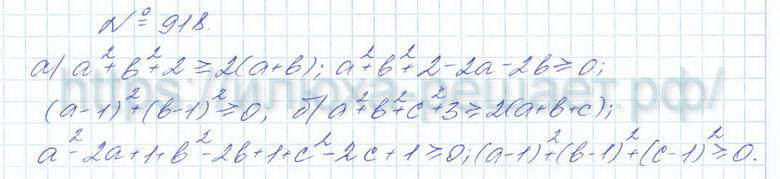 № 918.
а) a²+b²+2≥2(a+b); a²+b²+2-2a-2b≥0;
(a-1)²+(b-1)²≥0; б) a²+b²+c²+3≥2(a+b+c);
a²-2a+1+b²-2b+1+c²-2c+1≥0; (a-1)²+(b-1)²+(c-1)²≥0.
https://илюха-решает.рф/